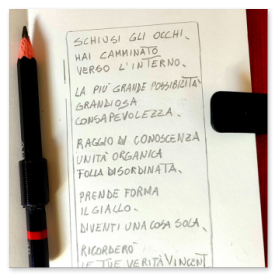 SCHIUSI GLI OCCHI.
HAI CAMMINATO
VERSO L'INTERNO.
LA PIÙ GRANDE POSSIBILITÀ.
GRANDIOSA
CONSAPEVOLEZZA.
RAGGIO DI CONOSCENZA
UNITÀ ORGANICA
FOLLA DISORDINATA.
PRENDE FORMA
IL GIALLO.
DIVENTI UNA COSA SOLA.
RICORDERÒ
LE TUE VERITÀ VINCENT